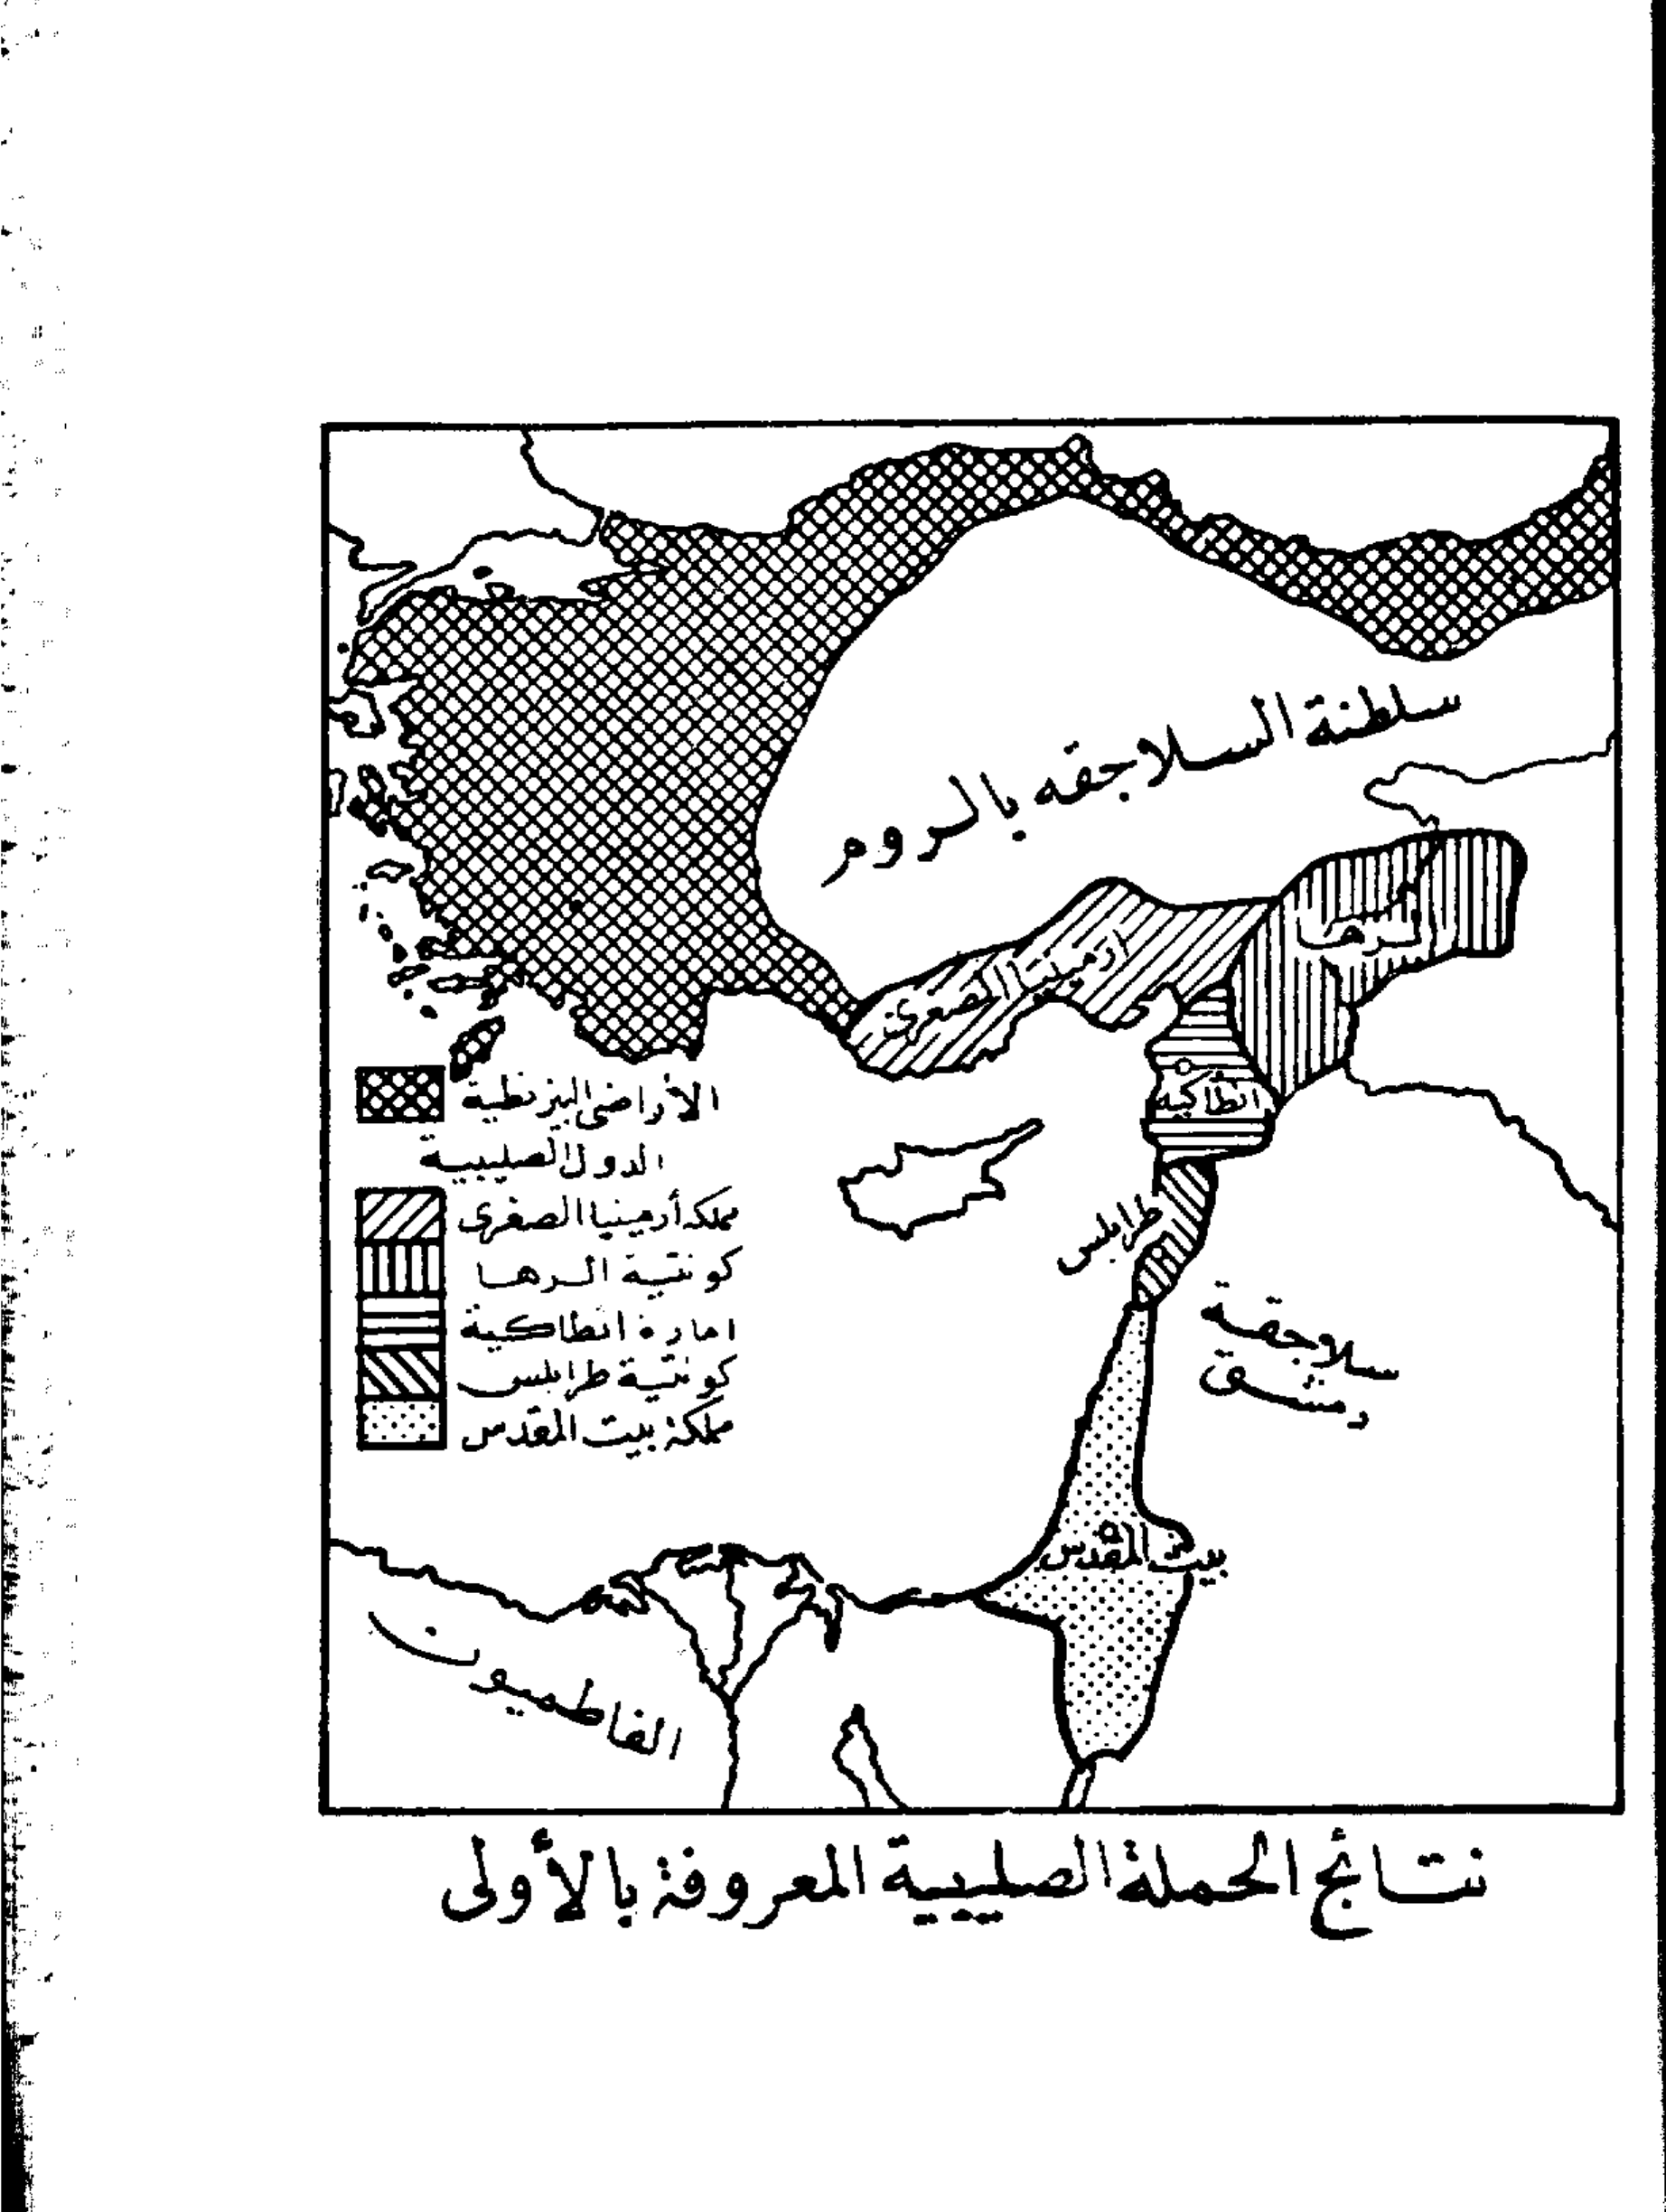 سلطنة السلاجقه بالروم
الرها
أرمينيا الصغرى
انطاكية
طرابلس
سلاجقة
دمشق
بيت المقدس
الفاطميون
الأراضى البيزنطية
الدول الصليبية
مملكة أرمينيا الصغرى
كونتية الرها
امارة انطاكية
كونتية طرابلس
مملكة بيت المقدس
نتائج الحملة الصليبية المعروفة بالأولى